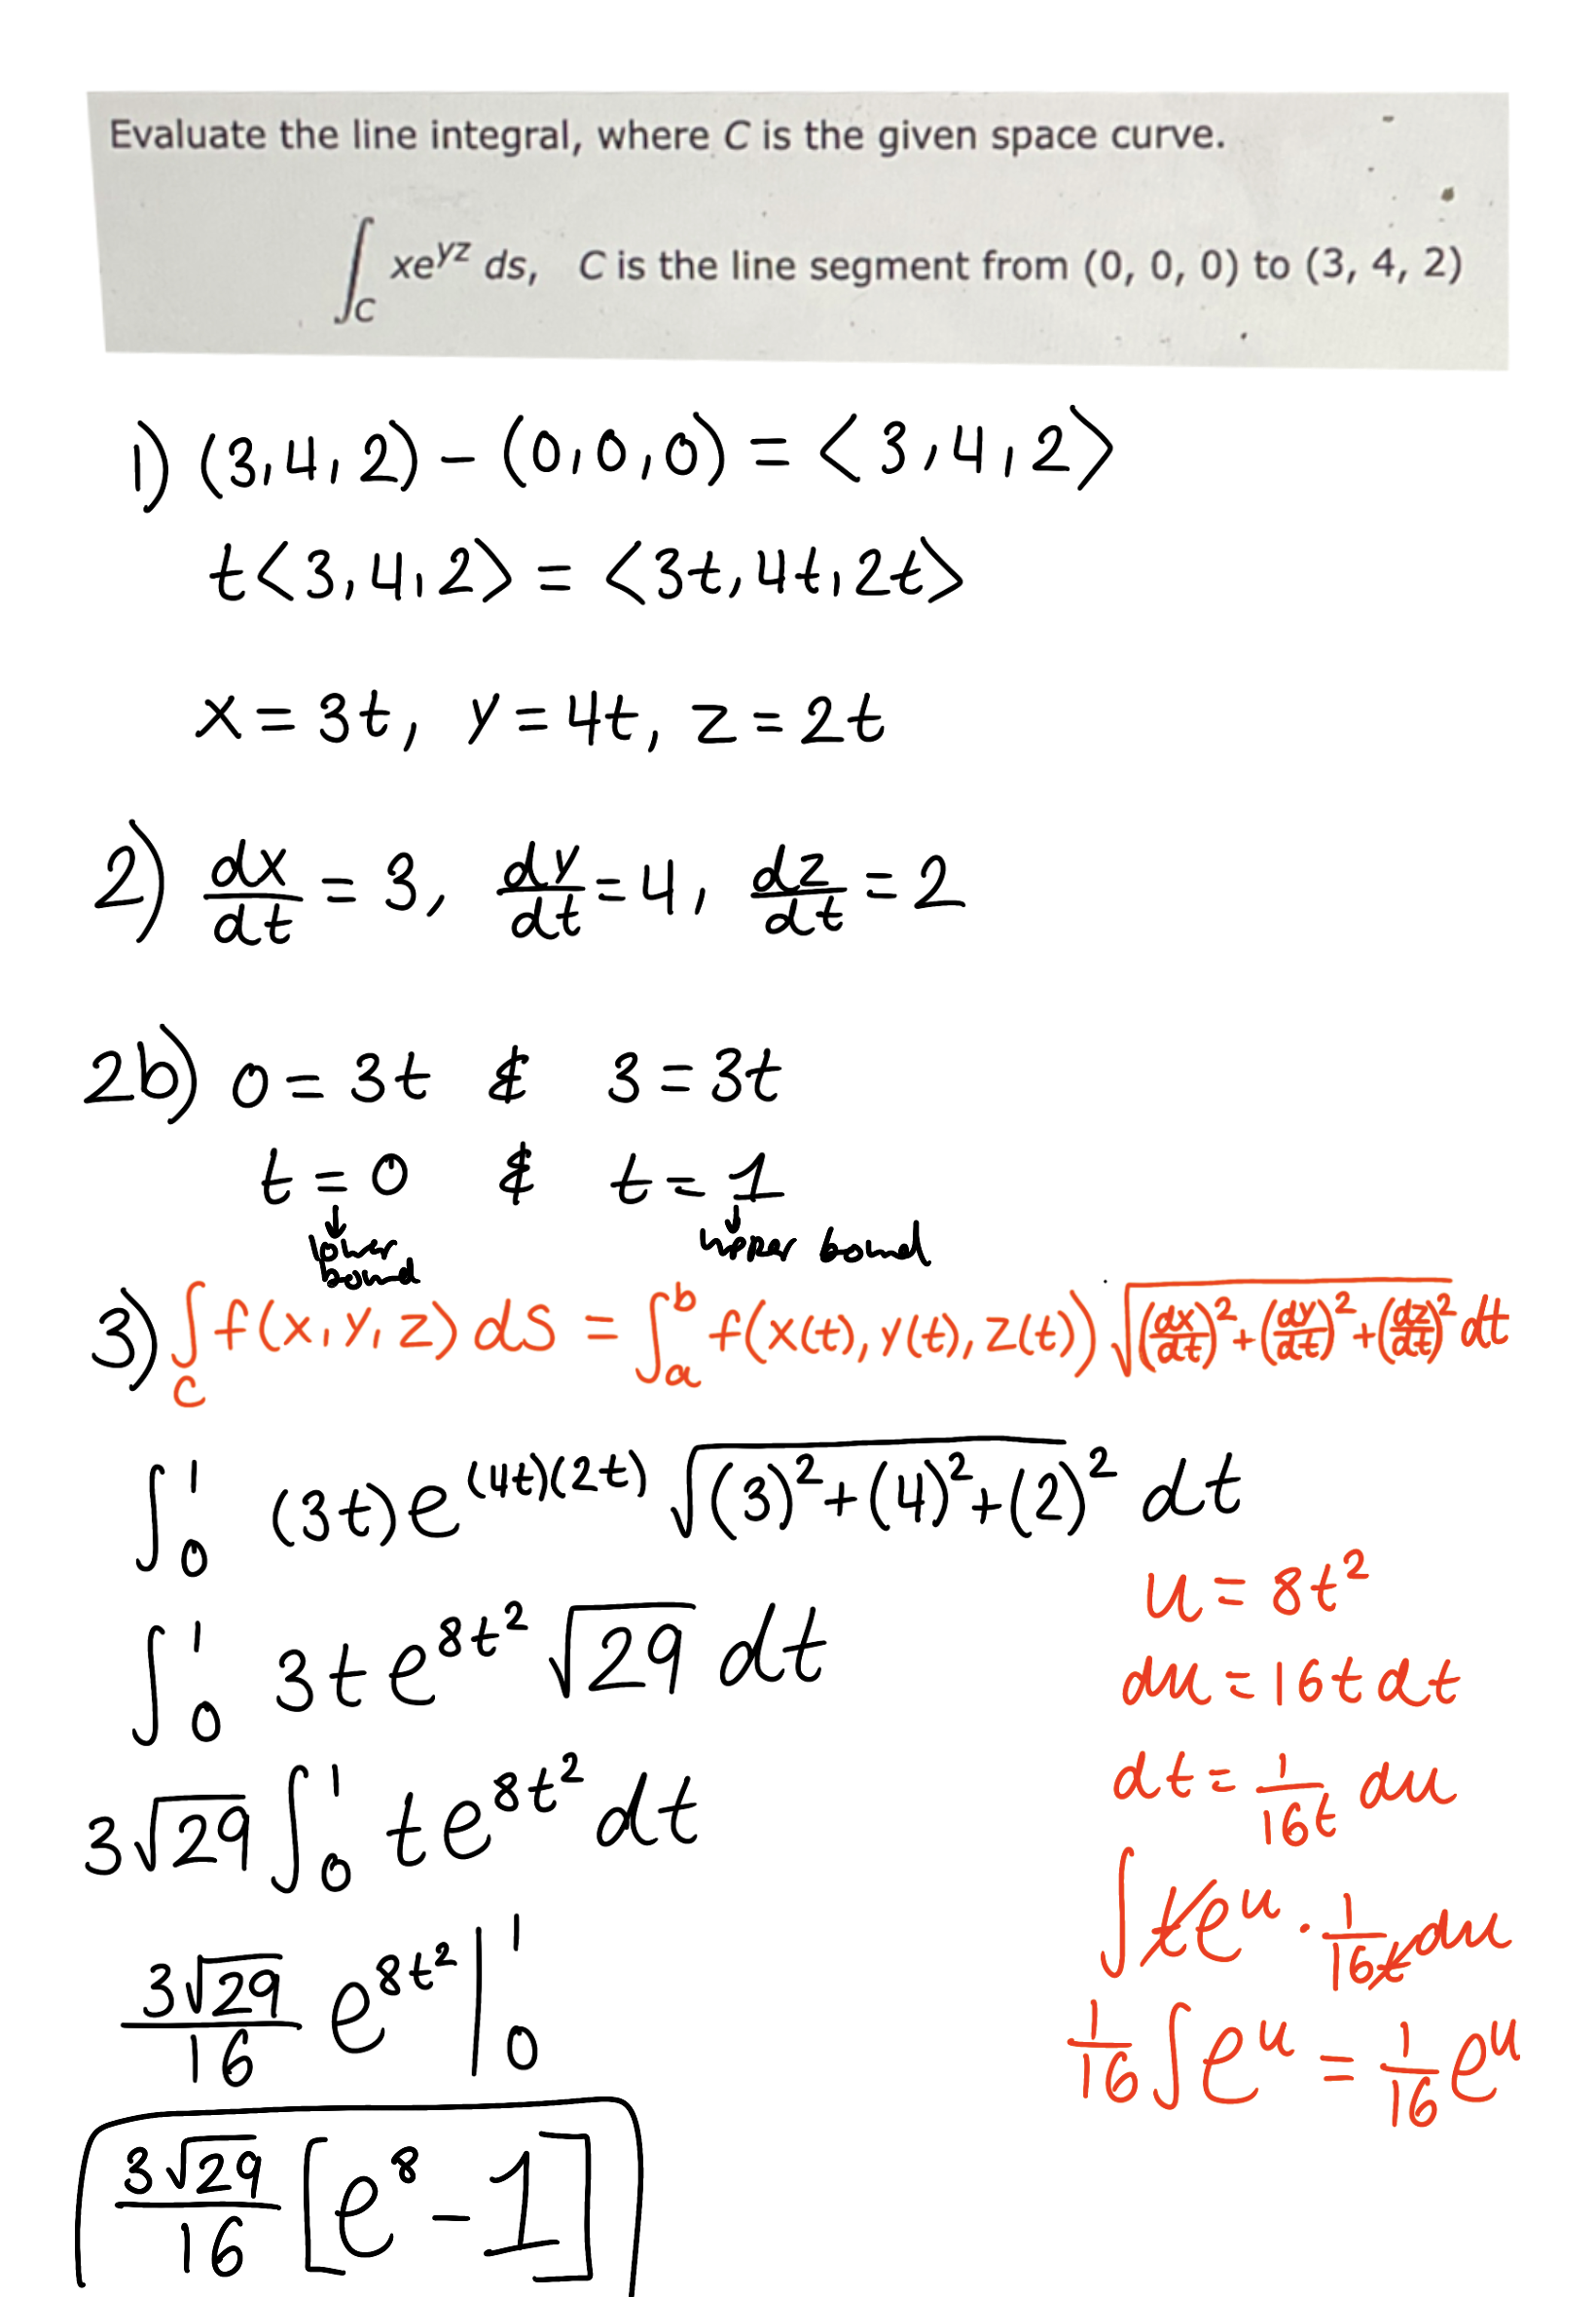 Evaluate the line integral, where C is the given space curve.
∫_C xe^{yz} ds, C is the line segment from (0, 0, 0) to (3, 4, 2)
1) (3,4,2) - (0,0,0) = <3,4,2>
t<3,4,2> = <3t,4t,2t>
x = 3t, y = 4t, z = 2t
2) dx/dt = 3, dy/dt = 4, dz/dt = 2
2b) 0 = 3t & 3 = 3t
t = 0 & t = 1
↓ lower bound ↓ upper bound
3) ∫_C f(x,y,z) ds = ∫_a^b f(x(t), y(t), z(t)) √((dx/dt)^2 + (dy/dt)^2 + (dz/dt)^2) dt
∫_0^1 (3t)e^{(4t)(2t)} √((3)^2 + (4)^2 + (2)^2) dt
∫_0^1 3te^{8t^2} √29 dt
3√29 ∫_0^1 te^{8t^2} dt
3√29/16 e^{8t^2} |_0^1
3√29/16 [e^8 - 1]
u = 8t^2
du = 16t dt
dt = 1/16t du
∫ te^u · 1/16t du
1/16 ∫ e^u = 1/16 e^u